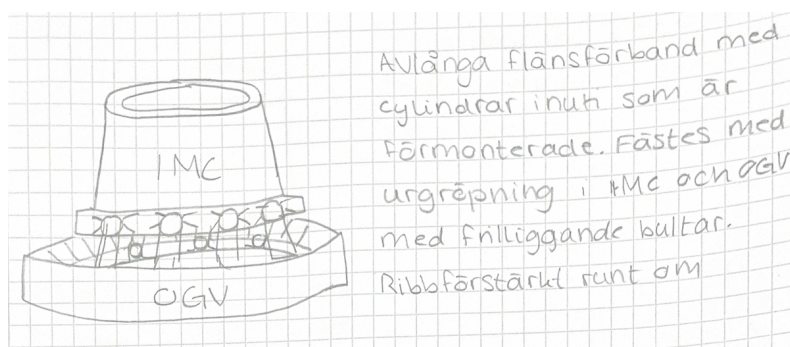 IMC
OGV
Avlånga flänsförband med
cylindrar inuti som är
förmonterade. Fästes med
urgröpning i IMC och OGV
med friliggande bultar.
Ribbförstärkt runt om